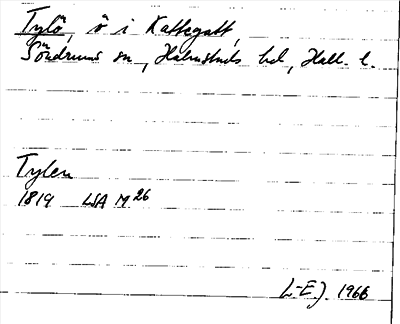 Tylö, ö i Kattegatt,
Söndrums sn, Halmstads hd, Hall. l.
Tylen
1819 LSA M 26
L-EJ. 1966